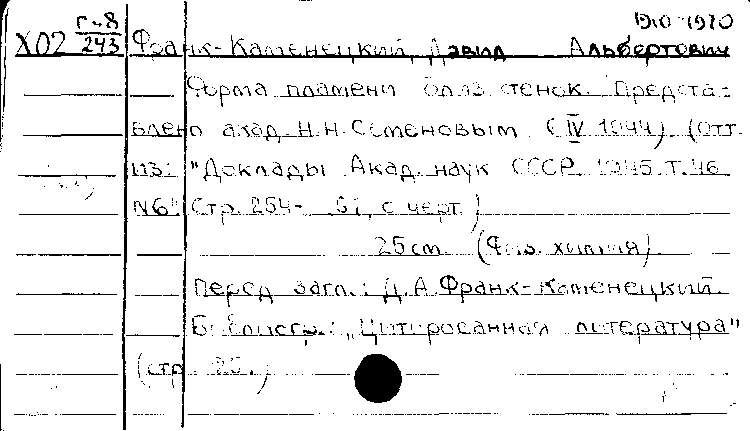 Г-8 1910-1970
Х02 243 Франк-Каменецкий, Давид Альбертович
Форма пламени близ стенок. Предста-
влено акад. Н.Н. Семеновым (IV 1944) (Отт.
из: "Доклады Акад. наук СССР. 1945. Т. 46
N6" Стр. 254- с черт.)
25см. (Физ. химия)
Перед загл.: Д.А. Франк-Каменецкий.
Библиогр.: "Цитированная литература"
(стр.